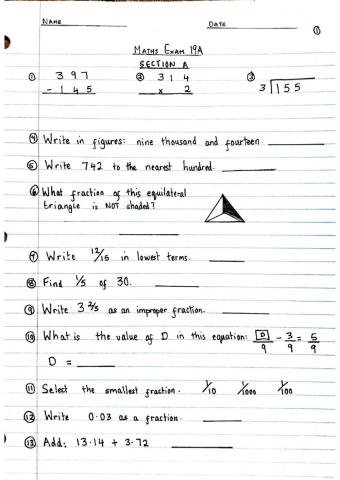 NAME DATE
①
MATHS EXAM 19A
SECTION A
① 397 ② 314 ③
- 145 x 2 3)155
④ Write in figures: nine thousand and fourteen.
⑤ Write 742 to the nearest hundred.
⑥ What fraction of this equilateral
triangle is NOT shaded?
⑦ Write 12/15 in lowest terms.
⑧ Find 1/5 of 30.
⑨ Write 3 2/5 as an improper fraction.
⑩ What is the value of D in this equation: D/9 - 3/9 = 5/9
D =
⑪ Select the smallest fraction. 1/10 1/1000 1/100
⑫ Write 0.03 as a fraction.
⑬ Add: 13.14 + 3.72